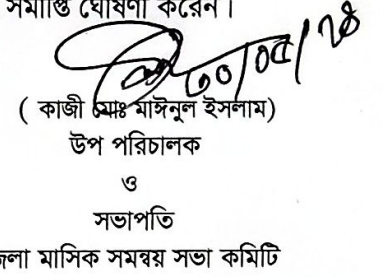 সমাপ্তি ঘোষণা করেন।
৩০/০৫/২৪
( কাজী মোঃ মাঈনুল ইসলাম)
উপ পরিচালক
ও
সভাপতি
জেলা মাসিক সমন্বয় সভা কমিটি